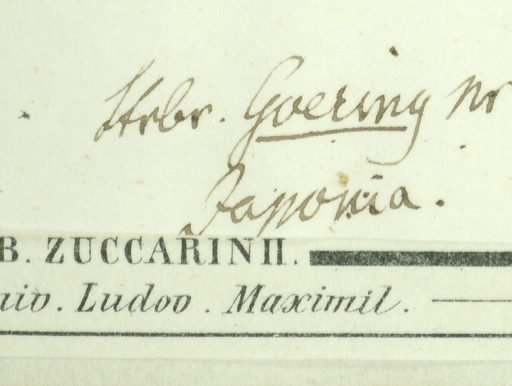 Hrbr. Goering Nr
Japonia.
B. ZUCCARINII.
niv. Ludov. Maximil.